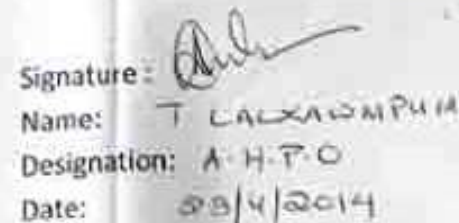 Signature:
Name: T LALXAWMPUIA
Designation: A.H.P.O
Date: /4/2014